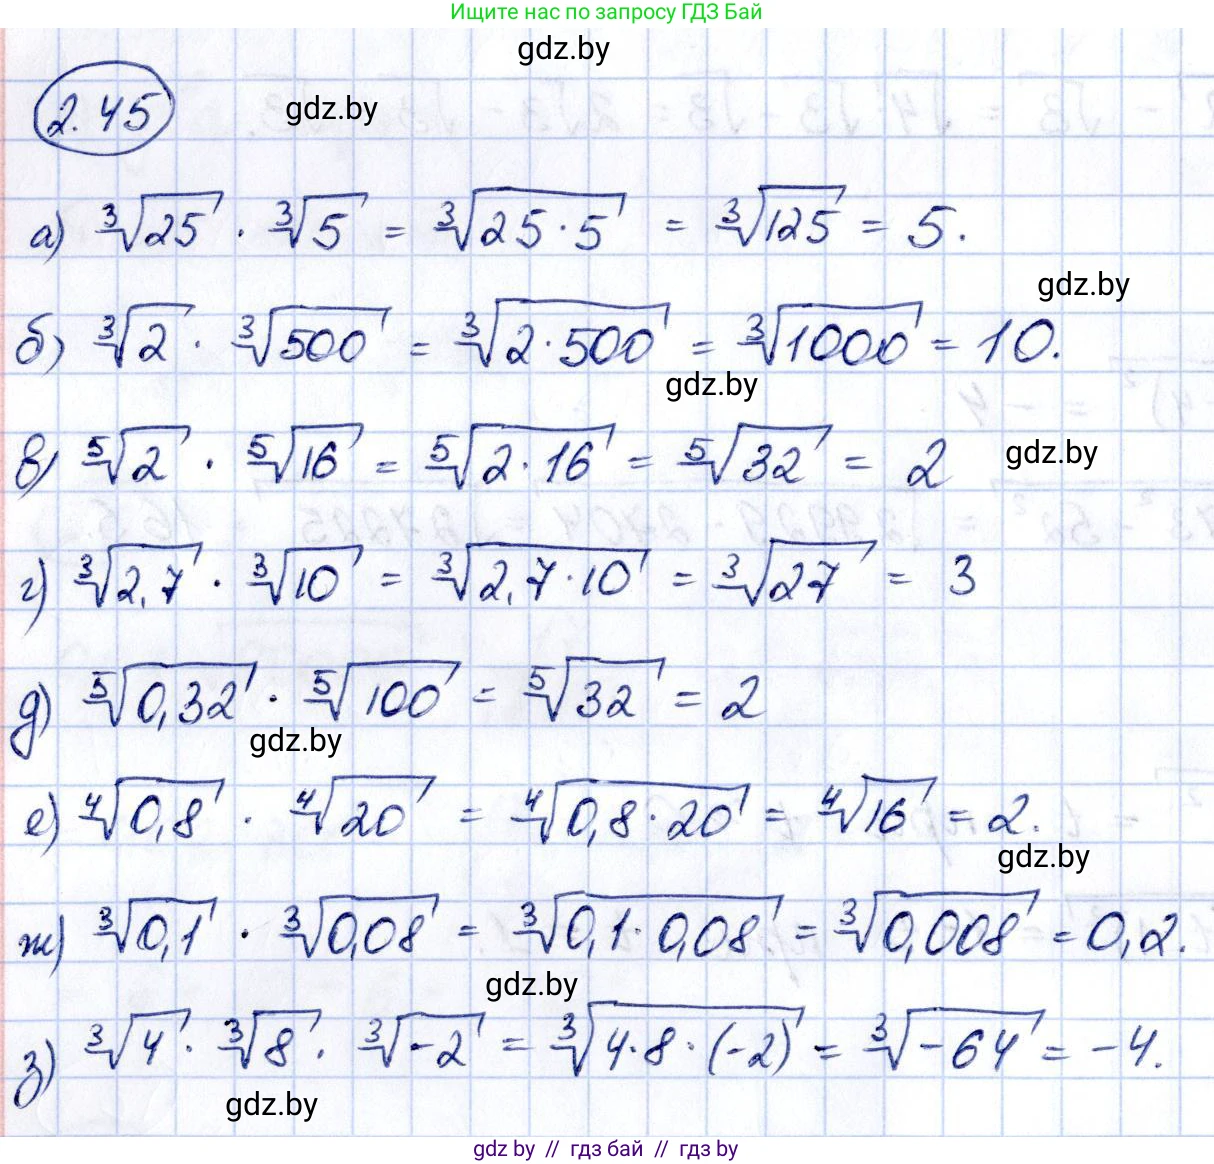 Ищите нас по запросу ГДЗ Бай
gdz.by
2.45
gdz.by
а) ∛25 · ∛5 = ∛(25·5) = ∛125 = 5.
gdz.by
б) ∛2 · ∛500 = ∛(2·500) = ∛1000 = 10.
gdz.by
в) ⁵√2 · ⁵√16 = ⁵√(2·16) = ⁵√32 = 2
gdz.by
г) ∛2,7 · ∛10 = ∛(2,7·10) = ∛27 = 3
д) ⁵√0,32 · ⁵√100 = ⁵√32 = 2
gdz.by
е) ⁴√0,8 · ⁴√20 = ⁴√(0,8·20) = ⁴√16 = 2.
gdz.by
ж) ∛0,1 · ∛0,08 = ∛(0,1·0,08) = ∛0,008 = 0,2.
gdz.by
з) ∛4 · ∛8 · ∛-2 = ∛(4·8·(-2)) = ∛-64 = -4.
gdz.by
gdz.by // гдз бай // гдз by